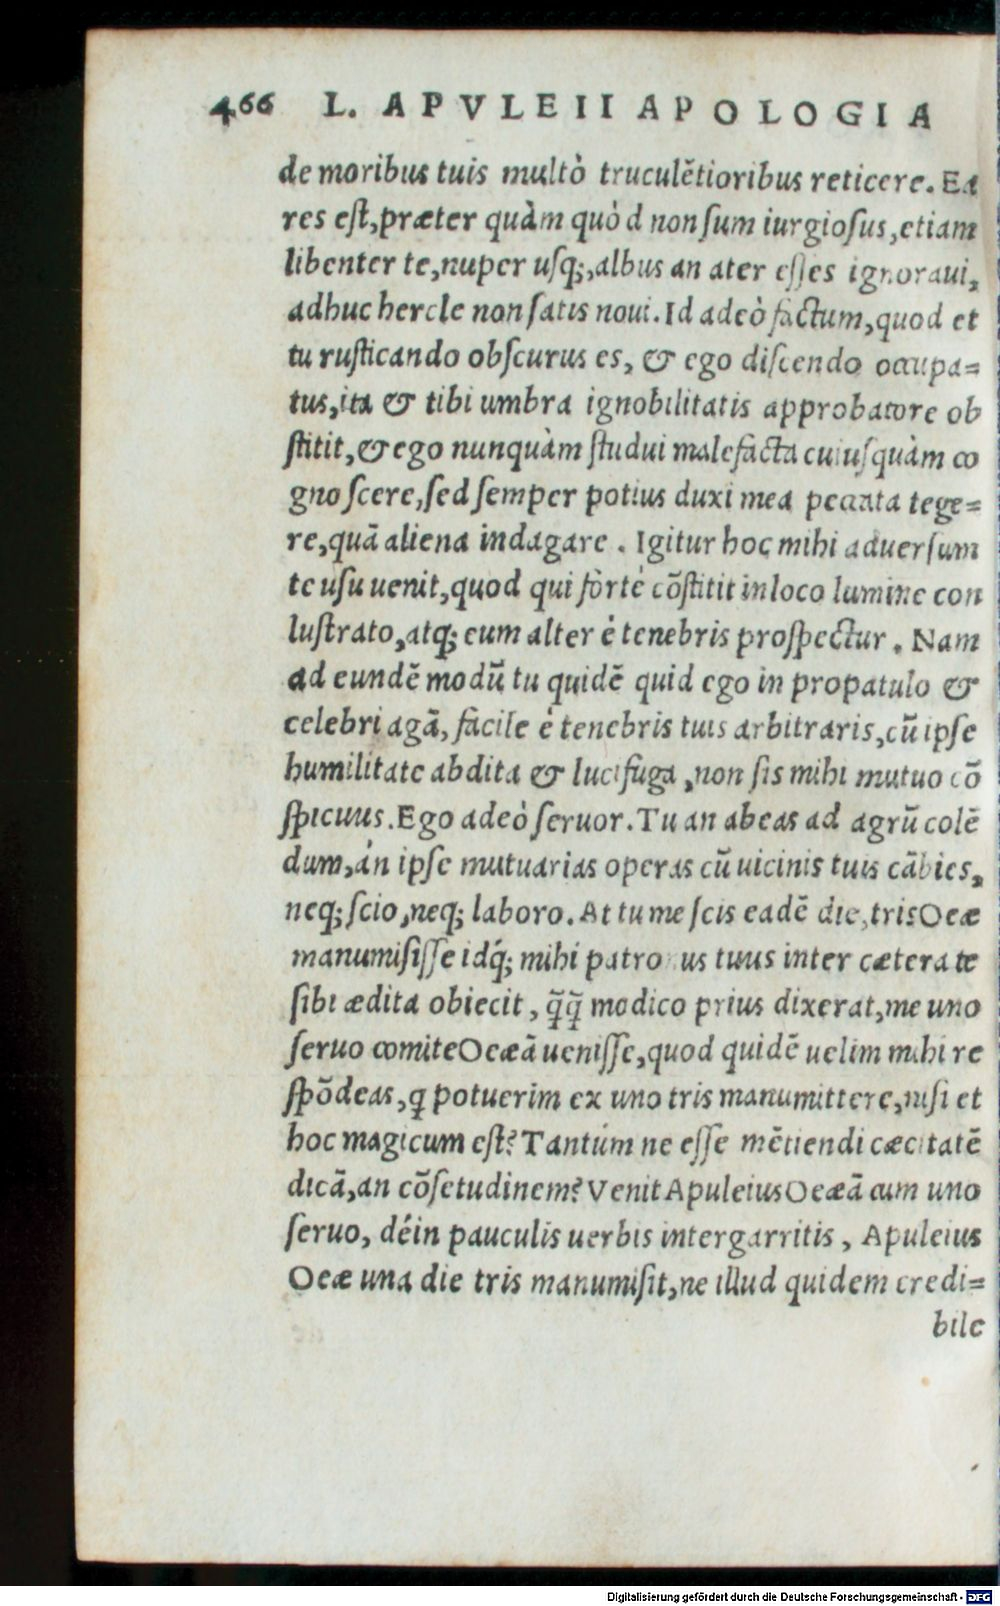 466 L. APVLEII APOLOGIA
de moribus tuis multò truculẽtioribus reticere. Ea
res eſt,præter quàm quòd non ſum iurgioſus,etiam
libenter te,nuper uſq;,albus an ater eſſes ignoraui,
adhuc hercle non ſatis noui. Id adeò factum,quod et
tu ruſticando obſcurus es, & ego diſcendo occupa=
tus,ita & tibi umbra ignobilitatis approbatore ob
ſtitit,& ego nunquàm ſtudui malefacta cuiuſquàm co
gnoſcere,ſed ſemper potius duxi mea peccata tege=
re,quã aliena indagare . Igitur hoc mihi aduerſum
te uſu uenit,quod qui fòrtè cõſtitit in loco lumine con
luſtrato,atq; eum alter è tenebris proſpectur . Nam
ad eundẽ modũ tu quidẽ quid ego in propatulo &
celebri agã, fàcile è tenebris tuis arbitraris,cũ ipſe
humilitate abdita & lucifuga ,non ſis mihi mutuo cõ
ſpicuus.Ego adeò ſeruor.Tu an abeas ad agrũ colẽ
dum,án ipſe mutuarias operas cũ uicinis tuis cãbies,
neq; ſcio,neq; laboro. At tu me ſcis eadẽ die,tris Oeæ
manumiſiſſe idq́; mihi patronus tuus inter cætera te
ſibi ædita obiecit , q̃q̃ modico prius dixerat,me uno
ſeruo comite Oeæã ueniſſe,quod quidẽ uelim mihi re
ſpõdeas,q potuerim ex uno tris manumittere,niſi et
hoc magicum eſt? Tantúm ne eſſe mẽtiendi cæcitatẽ
dicã,an cõſetudinem? Venit Apuleius Oeæã cum uno
ſeruo, déin pauculis uerbis intergarritis , Apuleius
Oeæ una die tris manumiſit,ne illud quidem credi=
bile
Digitalisierung gefördert durch die Deutsche Forschungsgemeinschaft - DFG